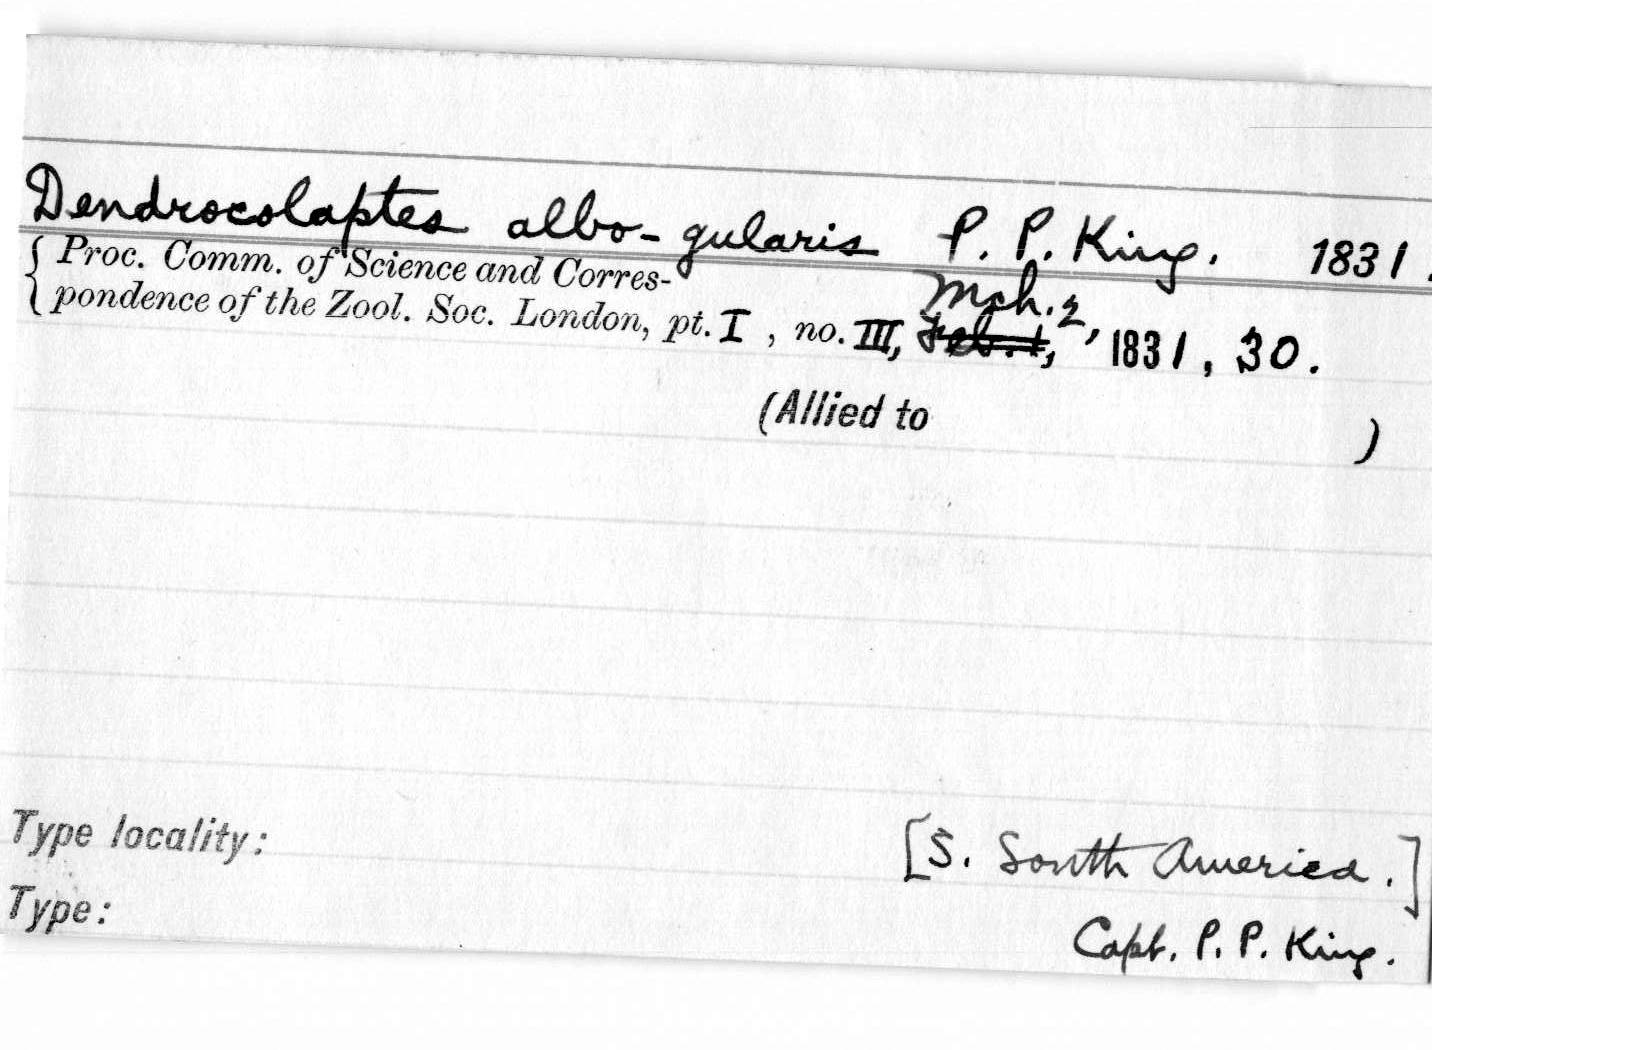 Dendrocolaptes albo-gularis P. P. King. 1831.
{ Proc. Comm. of Science and Corres-
pondence of the Zool. Soc. London, pt. I, no. III, Feb. 1, Mch. 2, 1831, 30.
(Allied to )
Type locality: [S. South America.]
Type: Capt. P. P. King.